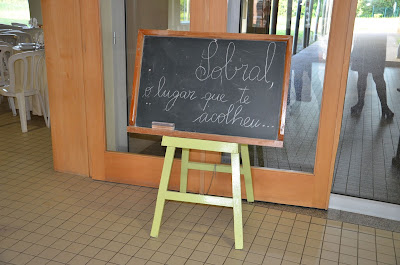 Sobral,
o lugar que te
acolheu...